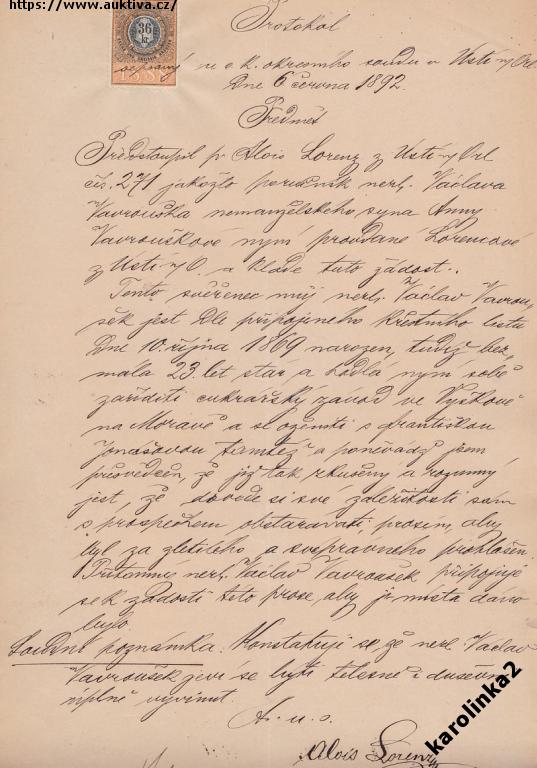 https://www.auktiva.cz/
36
kr.
Protokol
sepsaný u c. k. okresního soudu v Ústí n/Orl.
Dne 6 června 1892.
Předmět
Předstoupil p. Alois Lorenz z Ústí n/Orl
čís. 271 jakožto poručník nezl. Václava
Vavrouška nemanželského syna Anny
Vavrouškové nyní provdané Lorencové
z Ústí n/O. a klade tuto žádost.
Tento svěřenec můj nezl. Václav Vavrou-
šek jest dle připojeného křestního listu
dne 10. října 1869 narozen, tudíž bez
mála 23 let stár a hodlá nyní sobě
zaříditi cukrářský závod ve Vyškově
na Moravě a se oženiti s Františkou
Jonášovou tamtéž a poněvádž jsem
přesvědčen, že již tak zkušený a rozumný
jest, že dovede si své záležitosti sám
s prospěchem obstarávati, prosím, aby
byl za zletilého a svéprávného prohlášen.
Přítomný nezl. Václav Vavroušek připojuje
se k žádosti této prose, aby jí místa dáno
bylo
Soudní poznámka: Konstatuje se, že nezl. Václav
Vavroušek jeví se býti tělesně i duševně
úplně vyvinut.
A. u. s.
Alois Lorenz
karolinka2